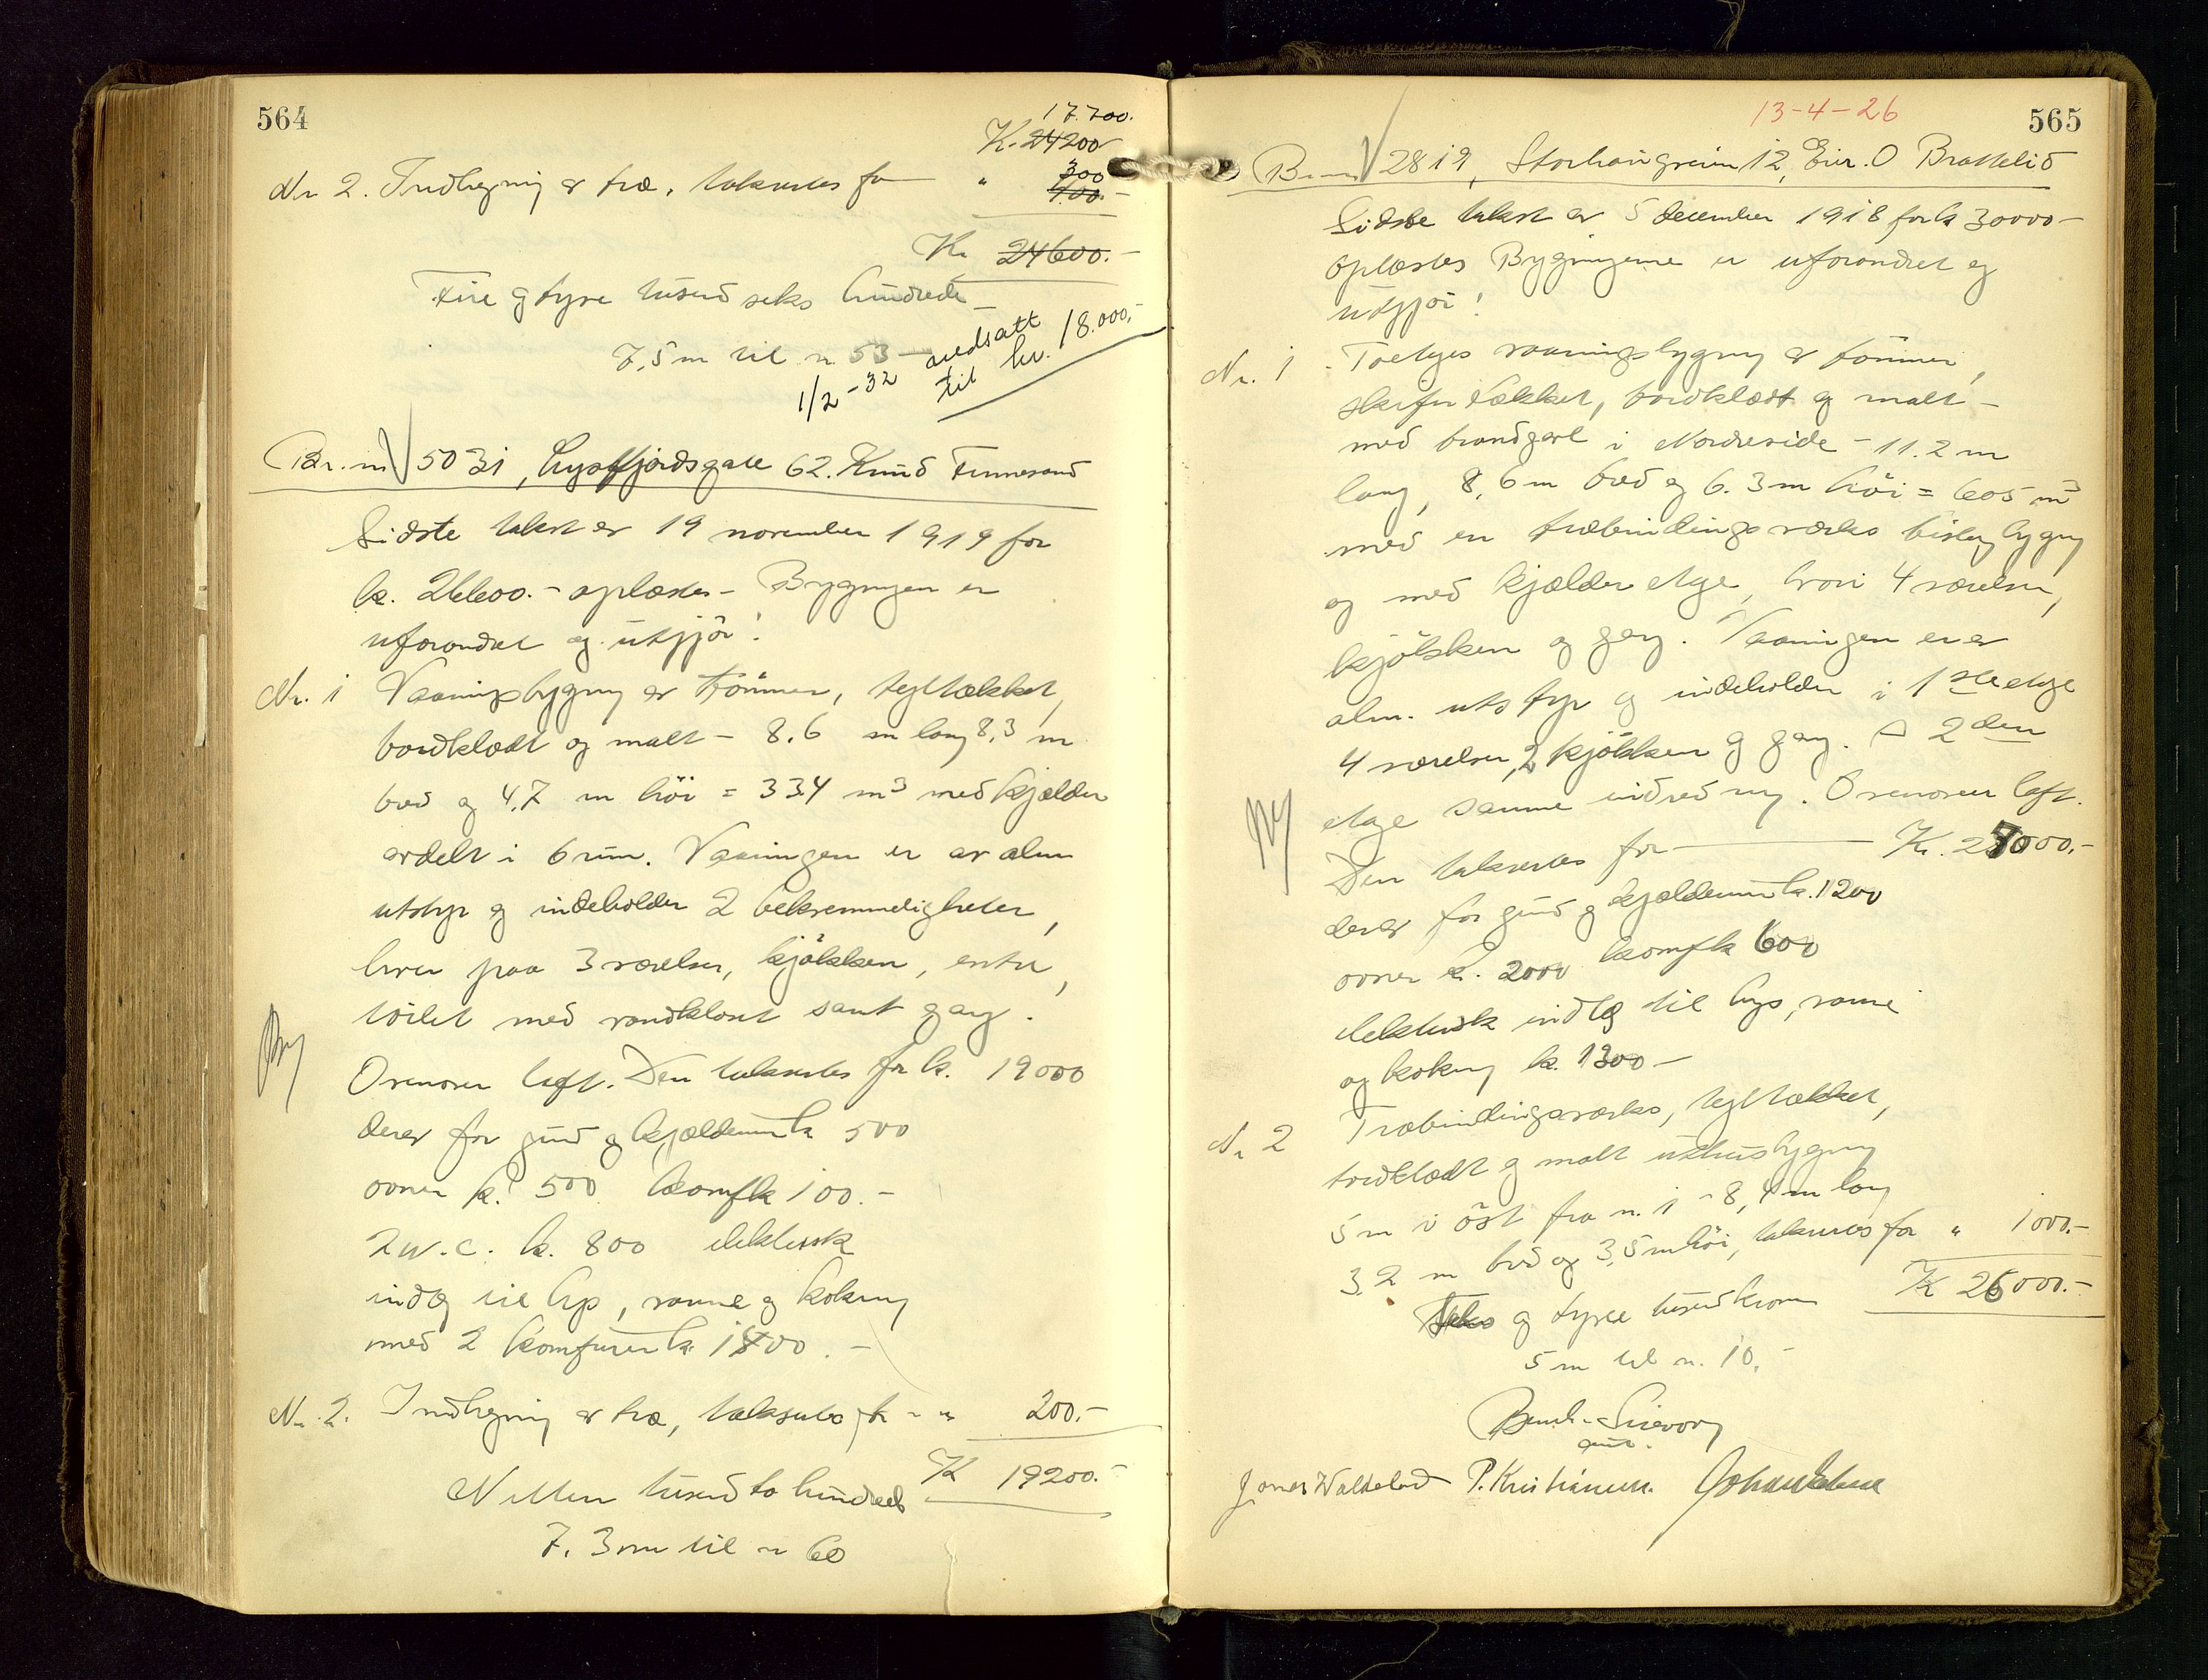 564
17.700.
K. 24200
Nr 2. Indhegning av træ, takseres for " 300
400.-
Kr 24600.-
Fire og tyve tusend seks hundrede
7,5 m til nr 53 -
1/2-32 nedsatt
til kr. 18.000,-
Br. nr 5031, Lysefjordsgate 62. Knud Finnesand
Sidste takst av 19 november 1919 for
kr. 26600.- oplæstes - Bygningen er
uforandret og utgjör:
Nr. 1 Vaaningsbygning av tömmer, tegltækket,
bordklædt og malt - 8.6 m lang 8,3 m
bred og 4,7 m höi = 334 m3 med kjælder
avdelt i 6 rum. Vaaningen er av alm
utstyr og indeholder 2 bekvemmeligheter,
hver paa 3 værelser, kjökken, entre,
toilet med vandklosset samt gang.
Ovenover loft. Den takseres for kr. 19000
derav for grund og kjældermur kr 500
ovner kr. 500 komf kr 100.-
2 W.C. kr. 800 elektrisk
indlæg til lys, varme og kokning
med 2 komfurer kr. 1800.-
Nr. 2. Indhegning av træ, takseres for - " 200.-
K 19200.-
Nitten tusend to hundrede
7.3 m til nr 60
13-4-26
565
Br nr 2819, Storhaugveien 12, Eier. O Brattelid
Sidste takst av 5 december 1918 for kr 30000-
oplæstes Bygningerne er uforandret og
utgjör:
Nr. 1 - Toetages vaaningsbygning av tömmer,
skifer tækket, bordklædt og malt -
med brandgavl i Nordreside - 11.2 m
lang, 8,6 m bred og 6.3 m höi = 605 m3
med en træbindingsverks bislagbygning
og med kjælder etage, hvori 4 værelser,
kjökken og gang. Vaaningen er av
alm. utstyr og indeholder i 1ste etage
4 værelser, 2 kjökken og gang. I 2den
etage samme indredning. Ovenover loft.
Den takseres for - K. 25000.-
derav for grund og kjældermur kr. 1200
ovner kr. 2000 komf kr 600
elektrisk indlæg til lys, varme
og kokning kr. 1300 -
Nr 2 Træbindingsverks, tegltækket,
bordklædt og malt uthusbygning
5 m i öst fra nr. 1 - 8,4 m lang
3,2 m bred og 3,5 m höi, takseres for " 1000.-
K 26000.-
Seks og tyve tusend kroner
5 m til nr. 10.-
P. Kristiansen.